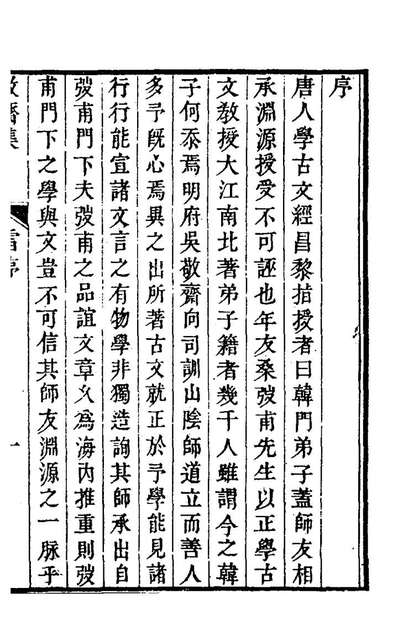 序
唐人學古文經昌黎指授者曰韓門弟子蓋師友相
承淵源授受不可誣也年友桑弢甫先生以正學古
文教授大江南北著弟子籍者幾千人雖謂今之韓
子何忝焉明府吳敬齋向司訓山陰師道立而善人
多予旣心焉異之出所著古文就正於予學能見諸
行行能宣諸文言之有物學非獨造詢其師承出自
弢甫門下夫弢甫之品誼文章久爲海內推重則弢
甫門下之學與文豈不可信其師友淵源之一脈乎
齋集
序
一